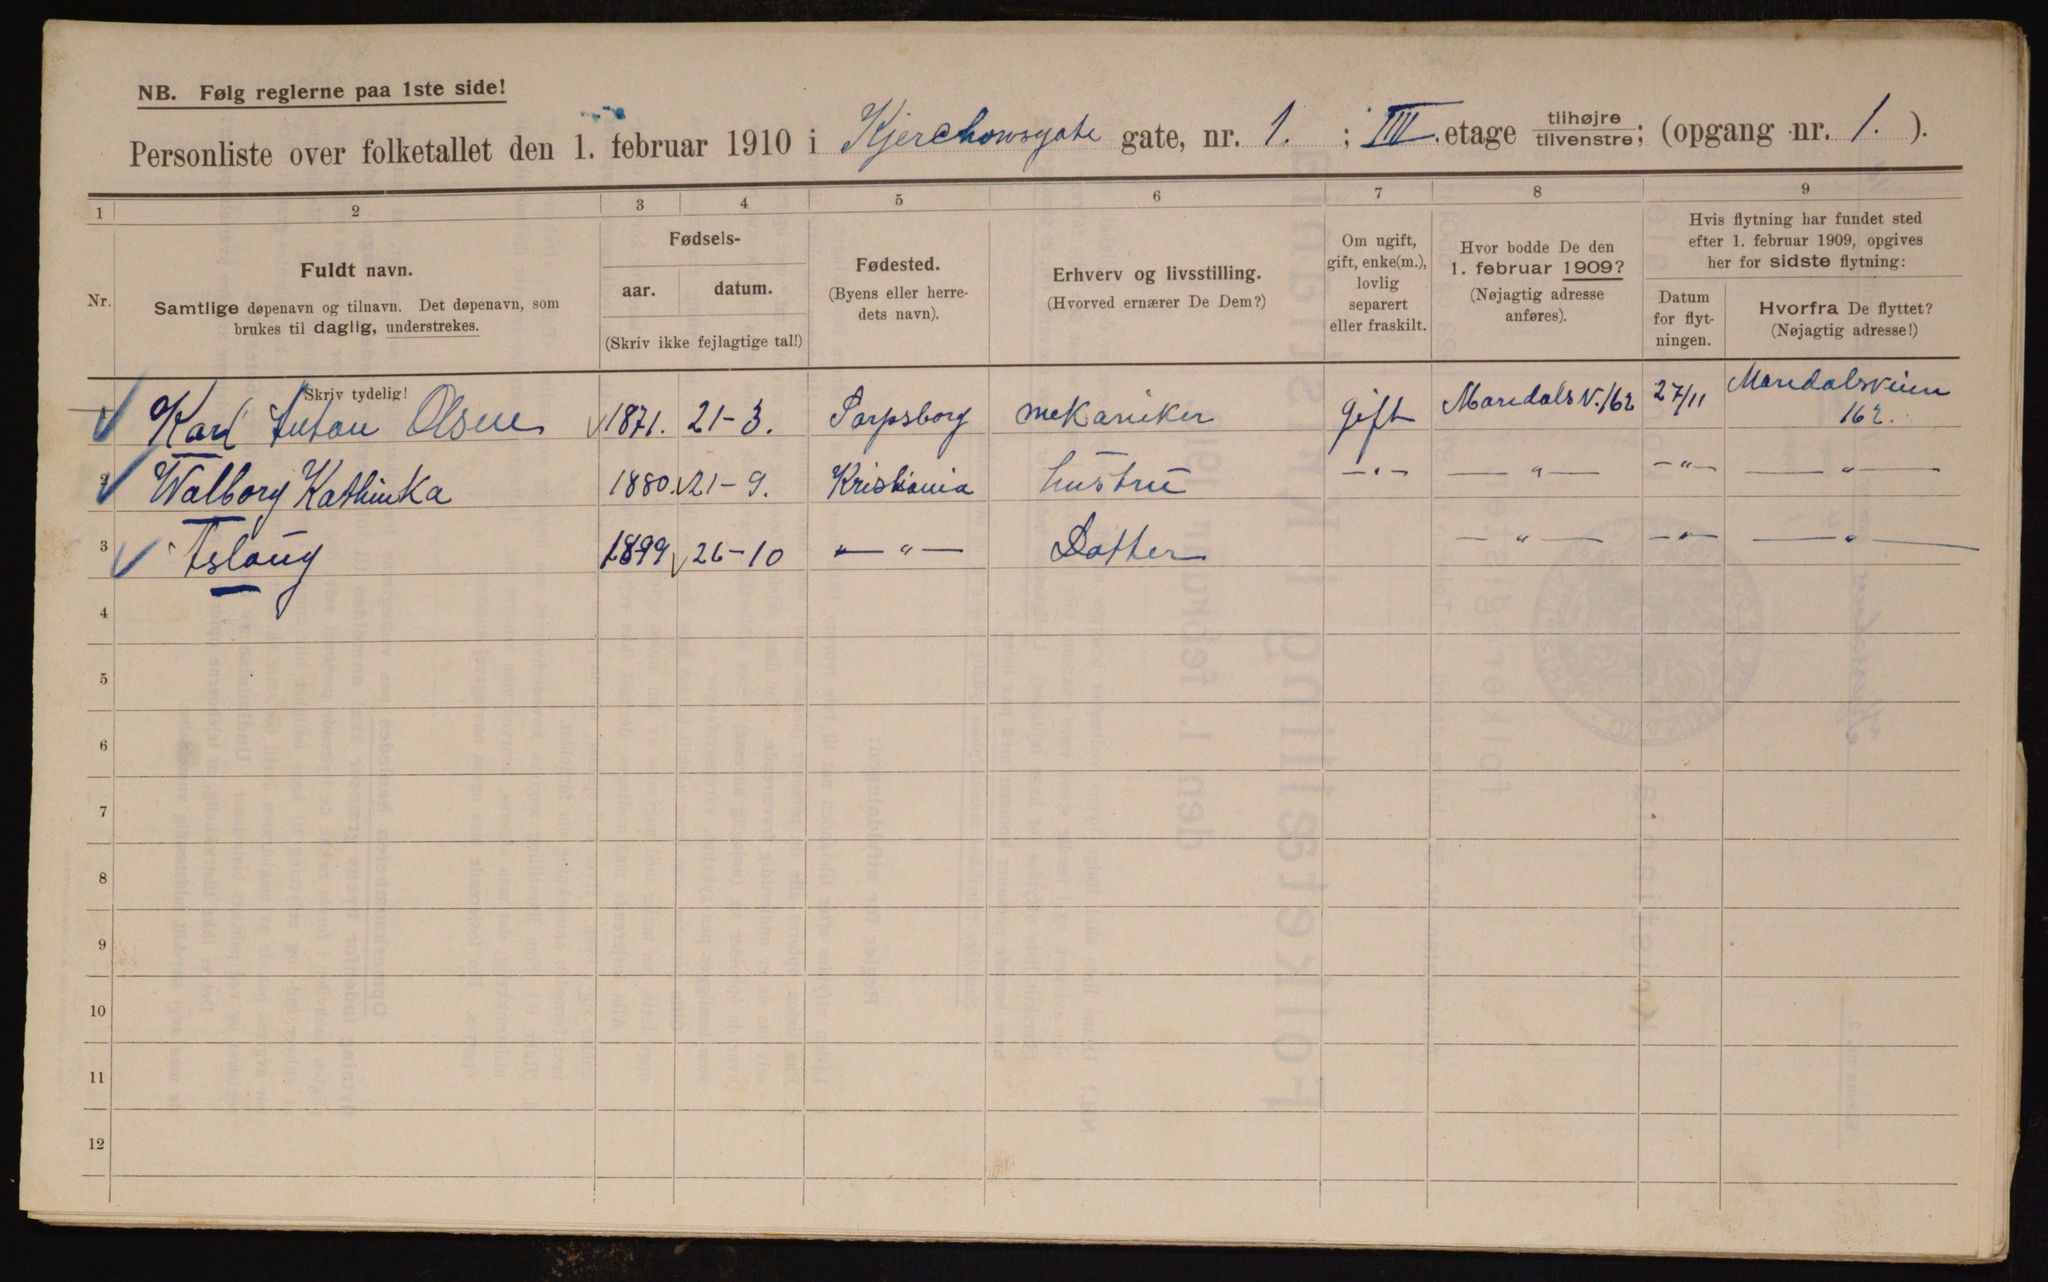 NB. Følg reglerne paa 1ste side!
Personliste over folketallet den 1. februar 1910 i Kjerchowsgate gate, nr. 1. ; III. etage tilhøjre tilvenstre; (opgang nr. 1. ).
1 2 3 4 5 6 7 8 9
Nr.
Fuldt navn.
Samtlige døpenavn og tilnavn. Det døpenavn, som
brukes til daglig, understrekes.
Fødsels-
aar. datum.
(Skriv ikke fejlagtige tal!)
Fødested.
(Byens eller herre-
dets navn).
Erhverv og livsstilling.
(Hvorved ernærer De Dem?)
Om ugift,
gift, enke(m.),
lovlig
separert
eller fraskilt.
Hvor bodde De den
1. februar 1909?
(Nøjagtig adresse
anføres).
Hvis flytning har fundet sted
efter 1. februar 1909, opgives
her for sidste flytning:
Datum
for flyt-
ningen.
Hvorfra De flyttet?
(Nøjagtig adresse!)
Skriv tydelig!
1 Karl Anton Olsen 1871. 21-3. Sarpsborg mekaniker gift Maridals v. 162 27/11 Maridalsveien
162.
2 Walborg Kathinka 1880. 21-9. Kristiania hustru —"— —"— —"— —"—
3 Aslaug 1899 26-10 —"— Datter —"— —"— —"—
4
5
6
7
8
9
10
11
12